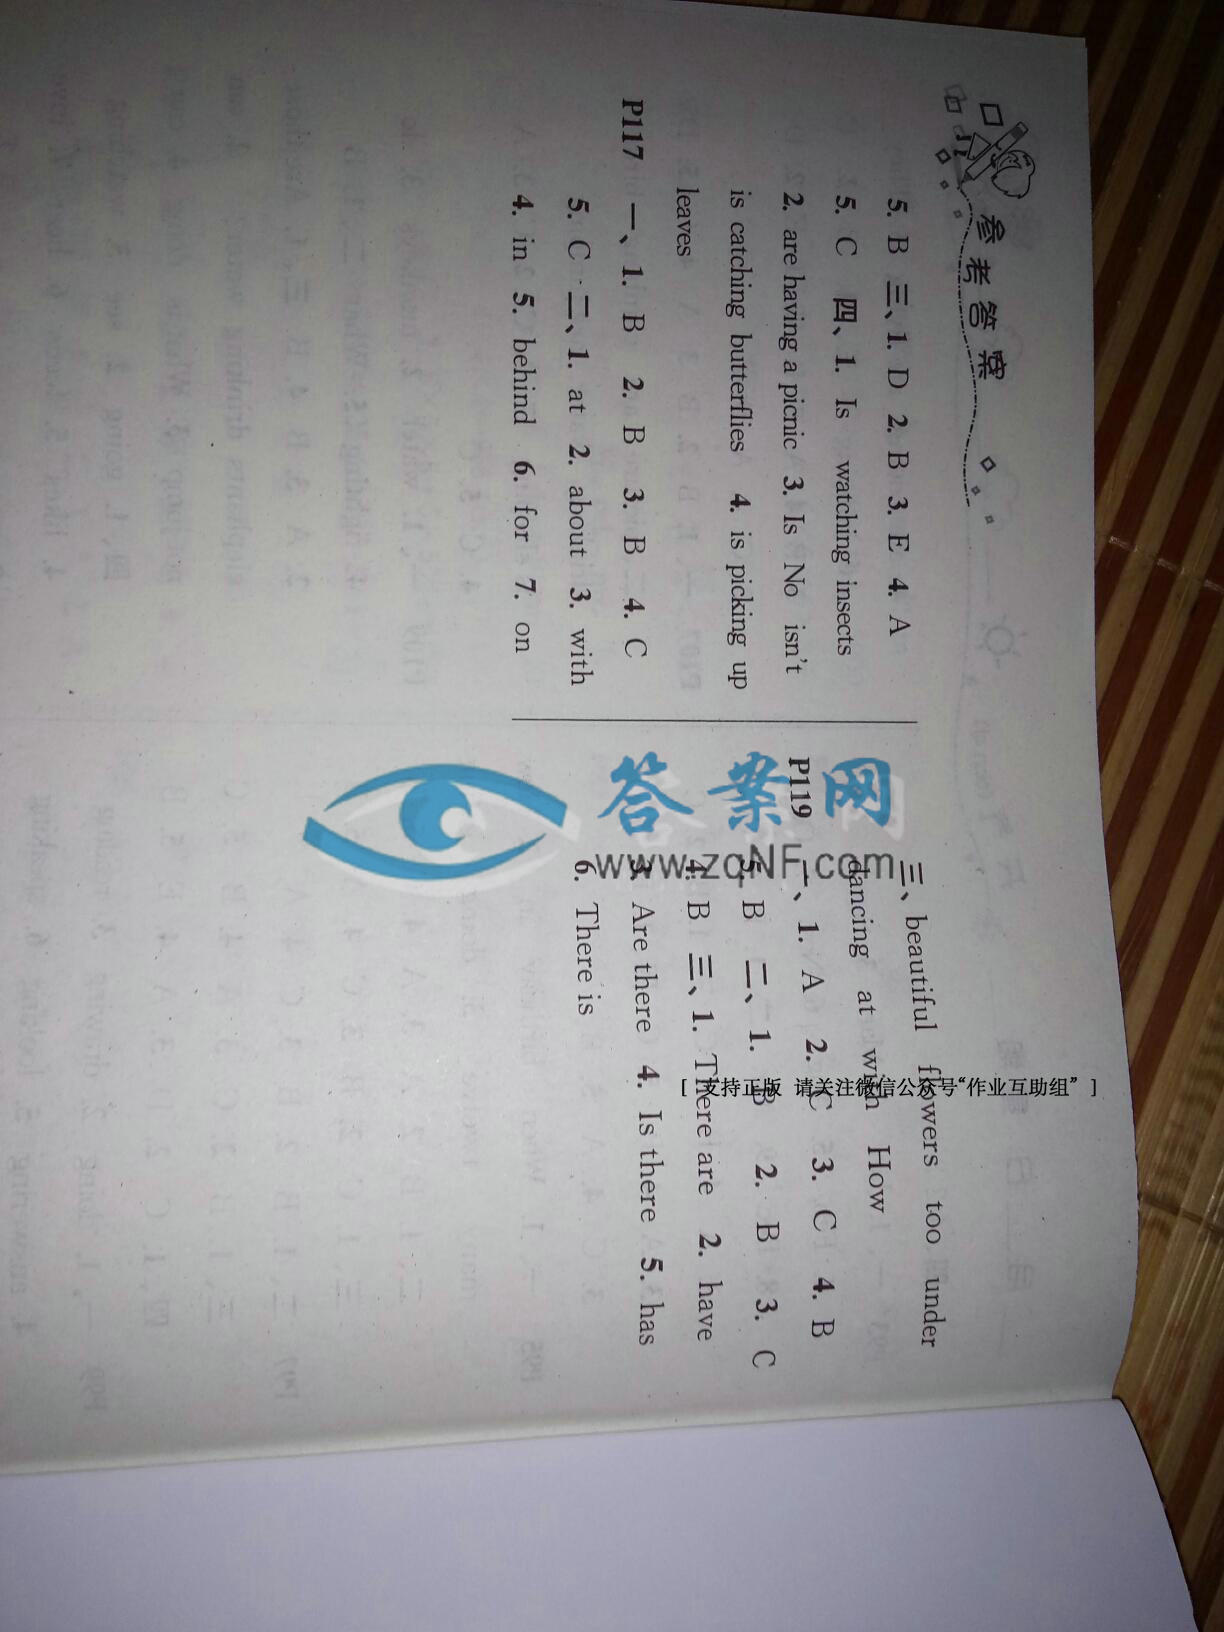 参考答案
5. B 三、1. D 2. B 3. E 4. A
5. C 四、1. Is watching insects
2. are having a picnic 3. Is No isn't
is catching butterflies 4. is picking up
leaves
P117 一、1. B 2. B 3. B 4. C
5. C 二、1. at 2. about 3. with
4. in 5. behind 6. for 7. on
三、beautiful flowers too under
dancing at with How
P119 一、1. A 2. C 3. C 4. B
5. B 二、1. B 2. B 3. C
4. B 三、1. There are 2. have
3. Are there 4. Is there 5. has
6. There is
答案网
www.zqNF.com
[ 支持正版 请关注微信公众号“作业互助组” ]